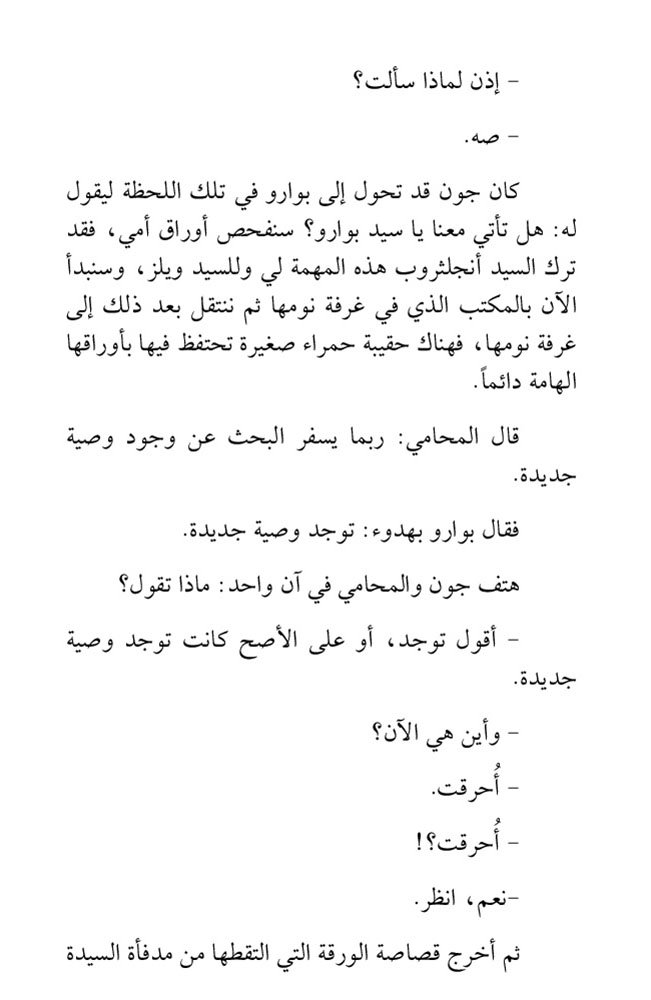 – إذن لماذا سألت؟
– صه.
كان جون قد تحول إلى بوارو في تلك اللحظة ليقول
له: هل تأتي معنا يا سيد بوارو؟ سنفحص أوراق أمي، فقد
ترك السيد أنجلثروب هذه المهمة لي وللسيد ويلز، وسنبدأ
الآن بالمكتب الذي في غرفة نومها ثم ننتقل بعد ذلك إلى
غرفة نومها، فهناك حقيبة حمراء صغيرة تحتفظ فيها بأوراقها
الهامة دائماً.
قال المحامي: ربما يسفر البحث عن وجود وصية
جديدة.
فقال بوارو بهدوء: توجد وصية جديدة.
هتف جون والمحامي في آن واحد: ماذا تقول؟
– أقول توجد، أو على الأصح كانت توجد وصية
جديدة.
– وأين هي الآن؟
– أُحرقت.
– أُحرقت؟!
–نعم، انظر.
ثم أخرج قصاصة الورقة التي التقطها من مدفأة السيدة